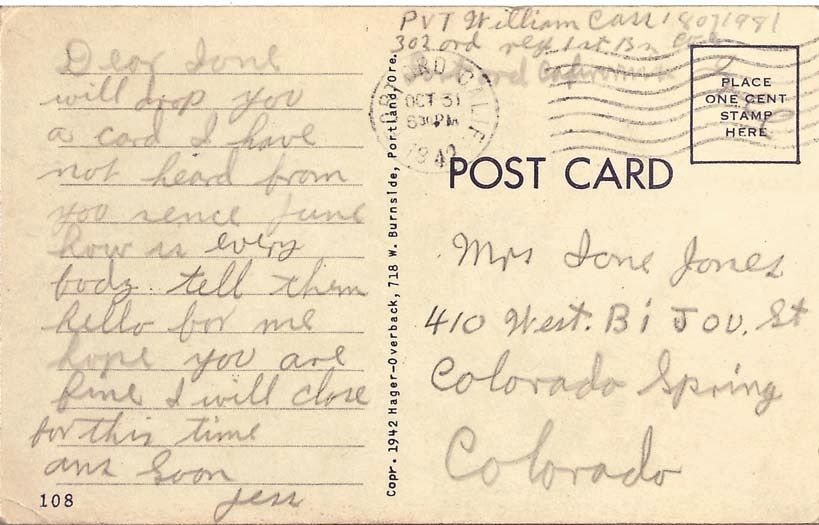 Dear Ione
will drop you
a card I have
not heard from
you sence June
how is every
body. tell them
hello for me
hope you are
fine I will close
for this time
ans Soon
Jess
108
Copr. 1942 Hager-Overback, 718 W. Burnside, Portland, Ore.
PVT William Cass
302 ord 1st Bn
OCT 31
630 PM
1942
CALIF
PLACE
ONE CENT
STAMP
HERE
POST CARD
Mrs Ione Jones
410 West. BiJOU. St
Colorado Spring
Colorado